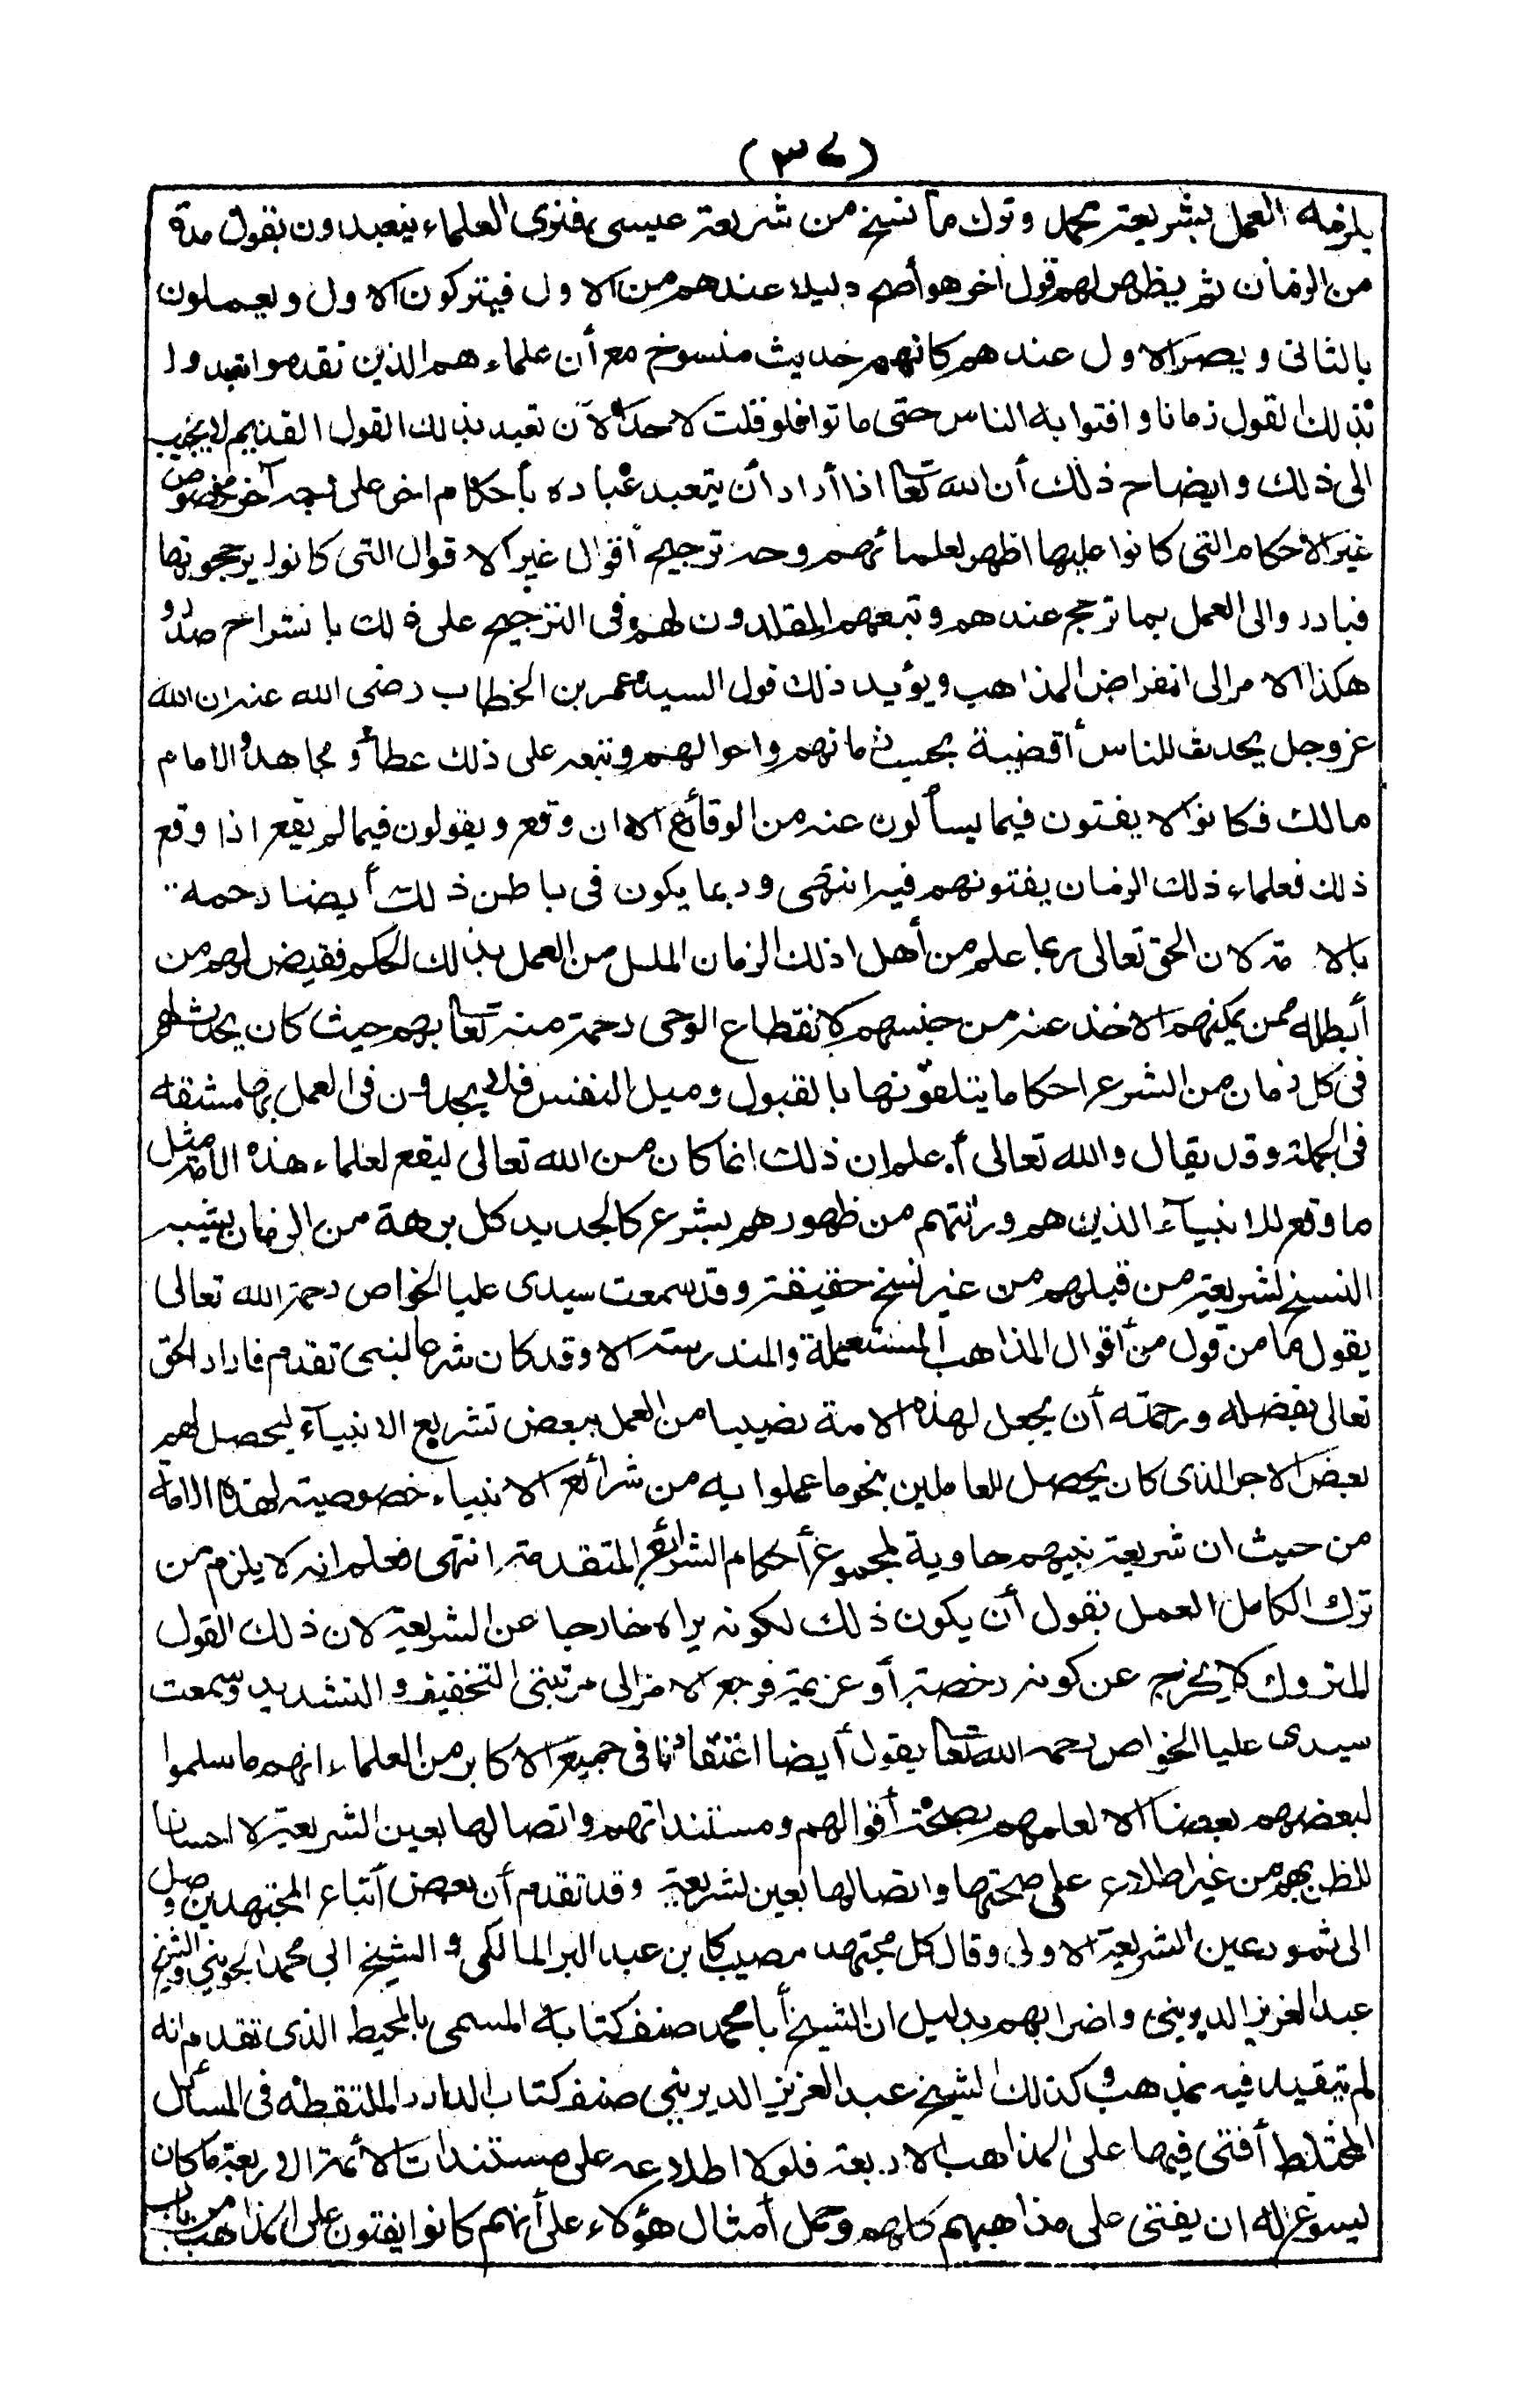 (٣٧)
يلزمه العمل بشريعة محمد وترك ما نسخ من شريعة عيسى فترى العلماء يتعبدون بقول مدة
من الزمان ثم يظهر لهم قول اخر هو أصح دليلا عندهم من الاول فيتركون الاول ويعملون
بالثانى ويصير الاول عندهم كانهم حديث منسوخ مع أن علماءهم الذين تقدموا تعبدوا
بذلك القول زمانا وافتوا به الناس حتى ماتوا فلو قلت لاحد الآن تعبد بذلك القول القديم لا يجيب
الى ذلك وايضاح ذلك أن الله تعا اذا أراد أن يتعبد عباده بأحكام اخر على وجه آخر مخصوص
غير الاحكام التى كانوا عليها اظهر لعلمائهم وجه ترجيح أقوال غير الاقوال التى كانوا يرجحونها
فبادروا الى العمل بما ترجح عندهم وتبعهم المقلدون لهم فى الترجيح على ذلك بانشراح صدر و
هكذا الامر الى انقراض المذاهب ويؤيد ذلك قول السيد عمر بن الخطاب رضى الله عنه ان الله
عز وجل يحدث للناس أقضية بحسب زمانهم واحوالهم وتبعه على ذلك عطاء ومجاهد والامام
مالك فكانوا لا يفتون فيما يسألون عنه من الوقائع الا ان وقع ويقولون فيما لم يقع اذا وقع
ذلك فعلماء ذلك الزمان يفتونهم فيه انتهى وربما يكون فى باطن ذلك أيضا رحمة
بالامة لان الحق تعالى ربما علم من أهل اذلك الزمان الملل من العمل بذلك الحكم فقيض لهم من
أبطله ممن يمكنهم الاخذ عنه من جنسهم لانقطاع الوحى رحمة منه تعا بهم حيث كان يحدث لهم
فى كل زمان من الشرع احكاما يتلقونها بالقبول وميل النفس فلا يجدون فى العمل بها مشقة
فى الجملة وقد يقال والله تعالى أعلم ان ذلك انما كان من الله تعالى ليقع لعلماء هذه الامة مثل
ما وقع للانبياء الذين هم ورثتهم من ظهورهم بشرع كالجديد كل برهة من الزمان يشبه
النسخ لشريعة من قبلهم من غير نسخ حقيقة وقد سمعت سيدى عليا الخواص رحمة الله تعالى
يقول ما من قول من أقوال المذاهب المستعملة والمندرسة الا وقد كان شرعا لنبى تقدم فاراد الحق
تعالى بفضله ورحمته أن يجعل لهذه الامة نصيبا من العمل ببعض تشريع الانبياء ليحصل لهم
بعض الاجر الذى كان يحصل للعاملين بنحو ما عملوا به من شرائع الانبياء خصوصية لهذه الامة
من حيث ان شريعة نبيهم حاوية لمجموع أحكام الشرائع المتقدمة انتهى فعلم انه لا يلزم من
ترك الكامل العمل بقول أن يكون ذلك لكونه يراه خارجا عن الشريعة لان ذلك القول
المتروك لا يخرج عن كونه رخصة أو عزيمة فرجع الامر الى مرتبتى التخفيف والتشديد وسمعت
سيدى عليا الخواص رحمه الله تعا يقول أيضا اعتقادنا فى جميع الاكابر من العلماء انهم ما سلموا
لبعضهم بعضا الا لعلمهم بصحة أقوالهم ومستنداتهم واتصالها بعين الشريعة لا احسانا
للظن بهم من غير اطلاع على صحتها واتصالها بعين لشريعة وقد تقدم أن بعض أتباع المجتهدين وصل
الى شهود عين الشريعة الاولى وقال كل مجتهد مصيب كابن عبد البر المالكى و الشيخ ابى محمد الجوينى والشيخ
عبد العزيز الديرينى واضرابهم بدليل ان الشيخ أبا محمد صنف كتابه المسمى بالمحيط الذى تقدم انه
لم يتقيد فيه بمذهب وكذلك الشيخ عبد العزيز الديرينى صنف كتاب الدرر الملتقطة فى المسائل
المختلط أفتى فيها على المذاهب الاربعة فلولا اطلاعه على مستندات الائمة الاربعة ما كان
يسوغ له ان يفتى على مذاهبهم كلهم وحمل أمثال هؤلاء على أنهم كانوا يفتون على المذاهب من باب